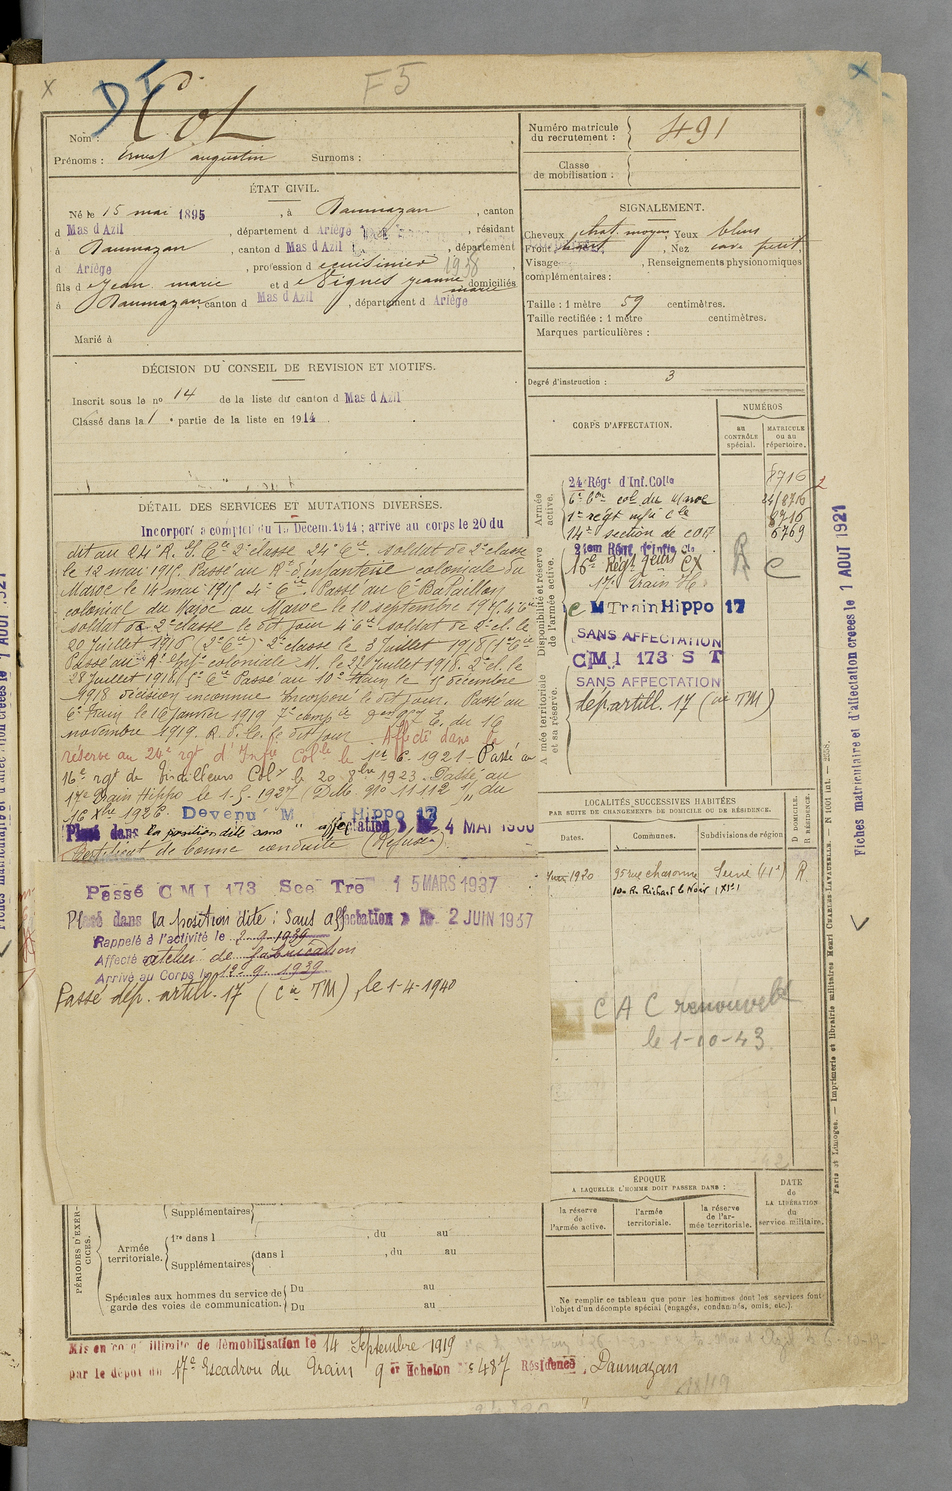 D I
F 5
Nom : Col
Prénoms : Ernest augustin Surnoms :
Numéro matricule du recrutement : 491
Classe de mobilisation :
ÉTAT CIVIL.
Né le 15 mai 1895, à Daumazan, canton
d Mas d'Azil, département d Ariège, résidant
à Daumazan, canton d Mas d'Azil, département
d Ariège, profession d cuisinier 1938
fils d Jean marie et d Vignes jeanne marie domiciliés
à Daumazan, canton d Mas d'Azil, département d Ariège
Marié à
SIGNALEMENT.
Cheveux chat. moyen, Yeux bleus
Front, Nez cave petit
Visage, Renseignements physionomiques
complémentaires :
Taille : 1 mètre 59 centimètres.
Taille rectifiée : 1 mètre centimètres.
Marques particulières :
Degré d'instruction : 3
DÉCISION DU CONSEIL DE REVISION ET MOTIFS.
Inscrit sous le no 14 de la liste du canton d Mas d'Azil
Classé dans la 1e partie de la liste en 1914
CORPS D'AFFECTATION.
NUMÉROS
au CONTRÔLE spécial.
MATRICULE ou au répertoire.
Armée active.
24 Régt d'Inf. Colle 8716
6e Bon col. du Maroc 24/8716
1er régt infie Cle 8716
14e section de COA 6769
Disponibilité et réserve de l'armée active.
24em Régt d'Infie Cle
16e Régt Tirrs Cx
17e Train He
C M Train Hippo 17
SANS AFFECTATION
C M I 173 S T
SANS AFFECTATION
Armée territoriale et sa réserve.
dép. artill. 17 (cie TM)
R
C
DÉTAIL DES SERVICES ET MUTATIONS DIVERSES.
Incorporé à compter du 15 Décem. 1914 ; arrivé au corps le 20 du
dit au 24e R. I. Cle 2e classe 24e Cie. Soldat de 2e classe
le 12 mai 1915. Passé au Rt d'infanterie coloniale du
Maroc le 14 mai 1915 4e Cie. Passé au 6e Bataillon
colonial du Maroc au Maroc le 10 septembre 1915. 4e Cie
soldat de 2e classe le dit jour 4e Cie soldat de 2e cl. le
20 Juillet 1916 (2e Cie). 2e classe le 3 Juillet 1918 (1e Cie
Passé au Rt Infie coloniale M. le 22 Juillet 1918. 2e cl. le
28 Juillet 1918 Cie Passé au 10e train le 15 Décembre
1918 décision inconnue Incorporé le dit jour. Passé au
6e train le 16 Janvier 1919 C. du 16
novembre 1919. R. d. l. le dit jour. Affecté dans la
réserve au 24e rgt d'Infie Colle le 1er 6. 1921 - Passé au
16e rgt de Tirailleurs Colx le 20 8bre 1923. Passé au
17e Train Hippo le 1-5-1927 (D. M. no 11112 1/11 du
16 Xbre 1926. Devenu C M Hippo 17
Placé dans la position dite sans " affectation " le 4 MAI
Certificat de bonne conduite (Refusé)
Passé C M I 173 Sce Tre 15 MARS 1937
Placé dans la position dite : Sans affectation " le 2 JUIN 1937
Rappelé à l'activité le 2 9 1939
Affecté atelier de fabrication
Arrivé au Corps le 12 9 1939
Passé dép. artill. 17 (cie TM), le 1-4-1940
LOCALITÉS SUCCESSIVES HABITÉES
PAR SUITE DE CHANGEMENTS DE DOMICILE OU DE RÉSIDENCE.
Dates. Communes. Subdivisions de région D DOMICILE. R RÉSIDENCE.
Juin 1920 95 rue charonne Seine (11e) R
10 R. Richard le Noir (XIe)
C A C renouvelé
le 1-10-43
PÉRIODES D'EXERCICES.
Supplémentaires
Armée territoriale.
1re dans l , du au
Supplémentaires dans l , du au
Spéciales aux hommes du service de garde des voies de communication.
Du au
Du au
ÉPOQUE
A LAQUELLE L'HOMME DOIT PASSER DANS :
la réserve de l'armée active.
l'armée territoriale.
la réserve de l'armée territoriale.
DATE de LA LIBÉRATION du service militaire.
Ne remplir ce tableau que pour les hommes dont les services font
l'objet d'un décompte spécial (engagés, condamnés, omis, etc.).
Mis en congé illimité de démobilisation le 14 Septembre 1919
par le dépôt du 17e Escadron du Train 9 er Echelon No 487 Résidence, Daumazan
Fiches matriculaire et d'affectation créées le 1 AOUT 1921
Paris et Limoges. — Imprimerie et librairie militaires Henri CHARLES-LAVAUZELLE.